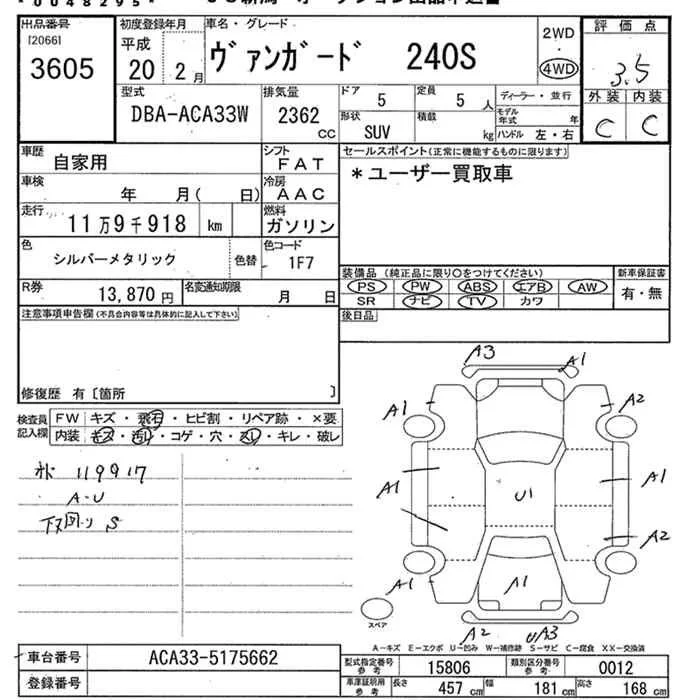 *0048295*
出品番号
[2066]
3605
初度登録年月
平成
20 2月
車名・グレード
ヴァンガード 240S
2WD
・
4WD
評価点
3.5
外装 内装
C C
型式
DBA-ACA33W
排気量
2362
CC
ドア 5
定員 5 人
形状
SUV
積載
kg
ディーラー・並行
モデル
年式 年
ハンドル 左・右
車歴
自家用
シフト
FAT
車検
年 月( 日)
冷房
AAC
走行
11万9千918 km
燃料
ガソリン
色
シルバーメタリック
色替
色コード
1F7
R券
13,870円
名変通知期限
月 日
セールスポイント(正常に機能するものに限ります)
*ユーザー買取車
装備品(純正品に限り○をつけてください)
PS PW ABS エアB AW
SR ナビ TV カワ
新車保証書
有・無
後日品
注意事項申告欄(不具合内容等は具体的に記入して下さい)
修復歴 有〔箇所 〕
検査員
記入欄
FW キズ・飛石・ヒビ割・リペア跡・×要
内装 キズ・汚れ・コゲ・穴・スレ・キレ・破レ
119917
A-U
下回り S
A3
A1
A1
A2
A1
A1
U1
A2
A1
A1
A2
UA3
スペア
A-キズ E-エクボ U-凹み W-補修跡 S-サビ C-腐食 XX-交換済
車台番号
ACA33-5175662
登録番号
型式指定番号
参考
15806
類別区分番号
参考
0012
車庫証明用
参考
長さ 457 cm
幅 181 cm
高さ 168 cm